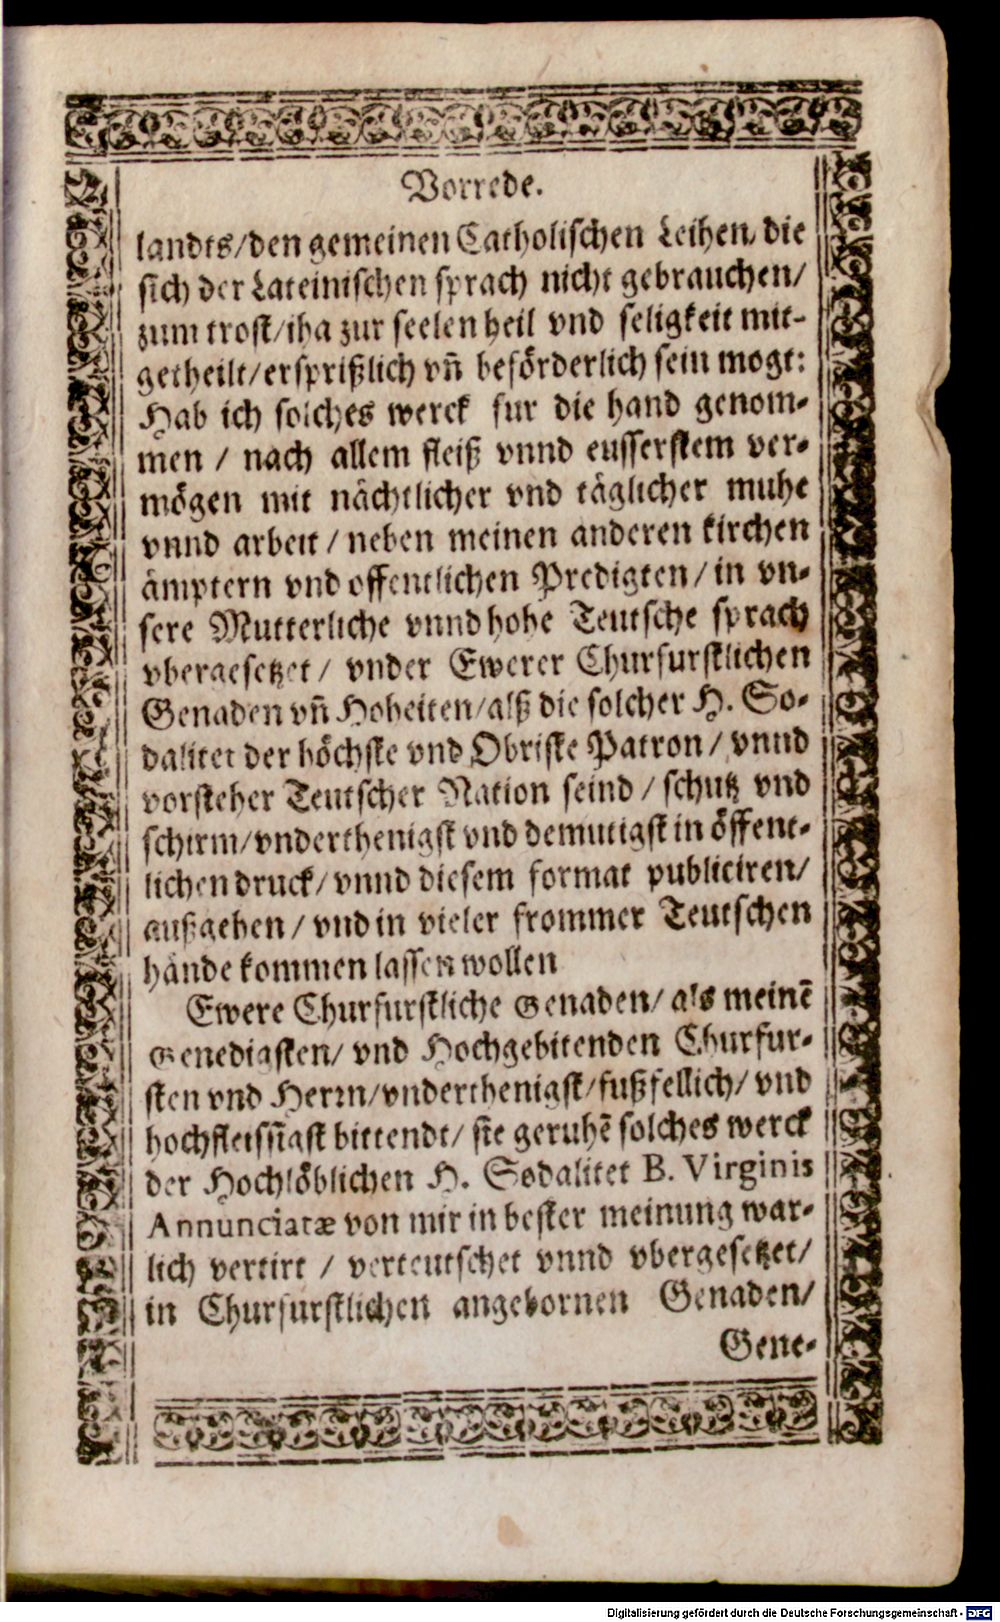 Vorrede.
landts/den gemeinen Catholischen Leihen/die
sich der Lateinischen sprach nicht gebrauchen/
zum trost/iha zur seelen heil vnd seligkeit mit-
getheilt/ersprißlich vn̄ beförderlich sein mogt:
Hab ich solches werck fur die hand genom-
men / nach allem fleiß vnnd eusserstem ver-
mögen mit nächtlicher vnd täglicher muhe
vnnd arbeit / neben meinen anderen kirchen
ämptern vnd offentlichen Predigten / in vn-
sere Mutterliche vnnd hohe Teutsche sprach
vbergesetzet / vnder Ewerer Churfurstlichen
Genaden vn̄ Hoheiten/alß die solcher H. So-
dalitet der höchste vnd Obriste Patron / vnnd
vorsteher Teutscher Nation seind / schutz vnd
schirm/vnderthenigst vnd demutigst in öffent-
lichen druck/ vnnd diesem format publiciren/
außgehen / vnd in vieler frommer Teutschen
hände kommen lassen wollen
Ewere Churfurstliche Genaden/ als meinē
Genedigsten/ vnd Hochgebitenden Churfur-
sten vnd Herrn/vnderthenigst/fußfellich/ vnd
hochfleissigst bittendt/ sie geruhē solches werck
der Hochlöblichen H. Sodalitet B. Virginis
Annunciatæ von mir in bester meinung war-
lich vertirt / verteutschet vnnd vbergesetzet/
in Churfurstlichen angebornen Genaden/
Gene-
Digitalisierung gefördert durch die Deutsche Forschungsgemeinschaft - DFG